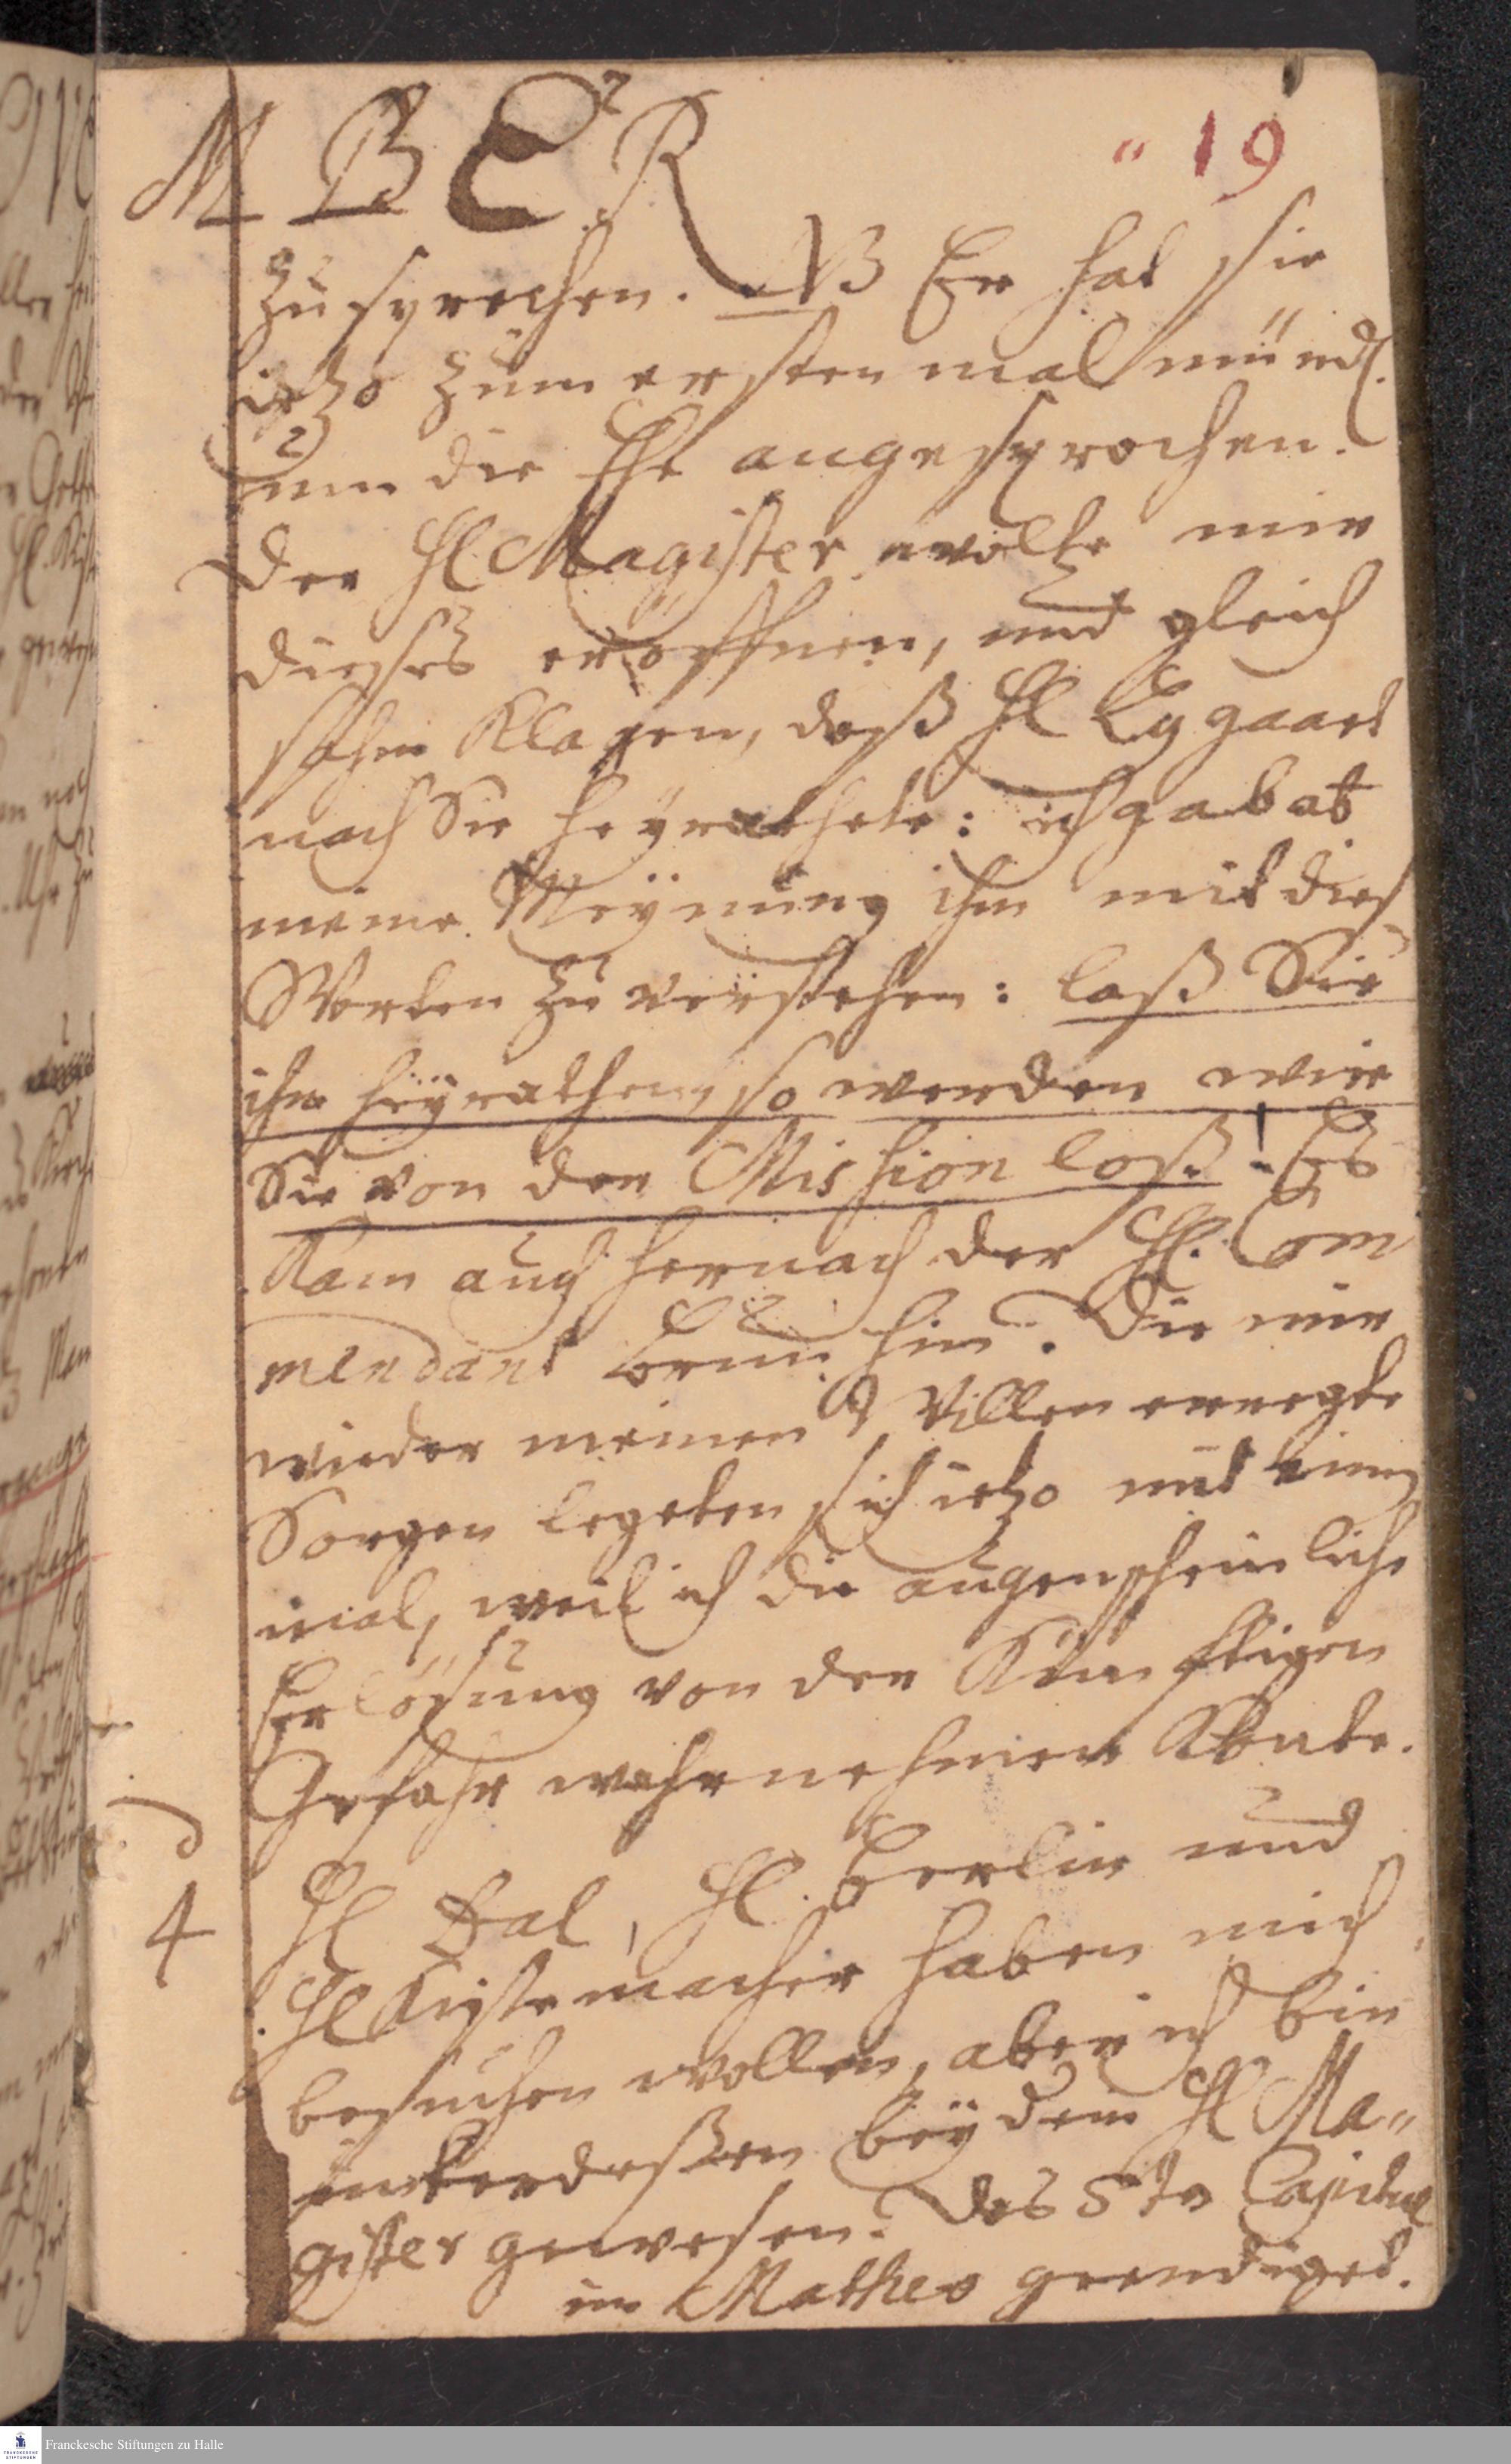 M BER
" 19
zu sprechen. NB Er hat sie
ietzo zum ersten mal mündl.
um die Ehe angesprochen.
Der Hl Magister wolte mir
dieses eröffnen, und gleich
sahm Klagen, daß Hl Lygaard
nach Sie heyrathete: ich gab ab
meine Meynung ihm mit dies
Worten zu verstehen: laß Sie
ihn heyrathen, so werden wir
Sie von der Mission loß! Es
Kam auch hernach der Hl. Com
mendant hin. Die mir
wieder meinen Willen erregte
Sorgen legeten sich ietzo mit einem
mal, weil ich die augenscheinliche
Erlösung von der Künfftigen
Gefahr wahrnehmen Konte.
4
Hl Dal, Hl. Berlin und
Hl Kistemacher haben mich
besuchen wollen, aber ich bin
unterdeßen bey dem Hl Ma"
gister gewesen. Das 5te Capitul
im Matheo geendiget.
Franckesche Stiftungen zu Halle